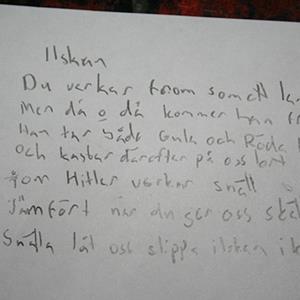 Ilskan
Du verkar from som ett la
Men då o då kommer han fr
Han tar både Gula och Röda
och kastar därefter på oss bort
som Hitler verkar snäll
Jämfört när du ger oss skäl
Snälla låt oss slippa ilskan i k